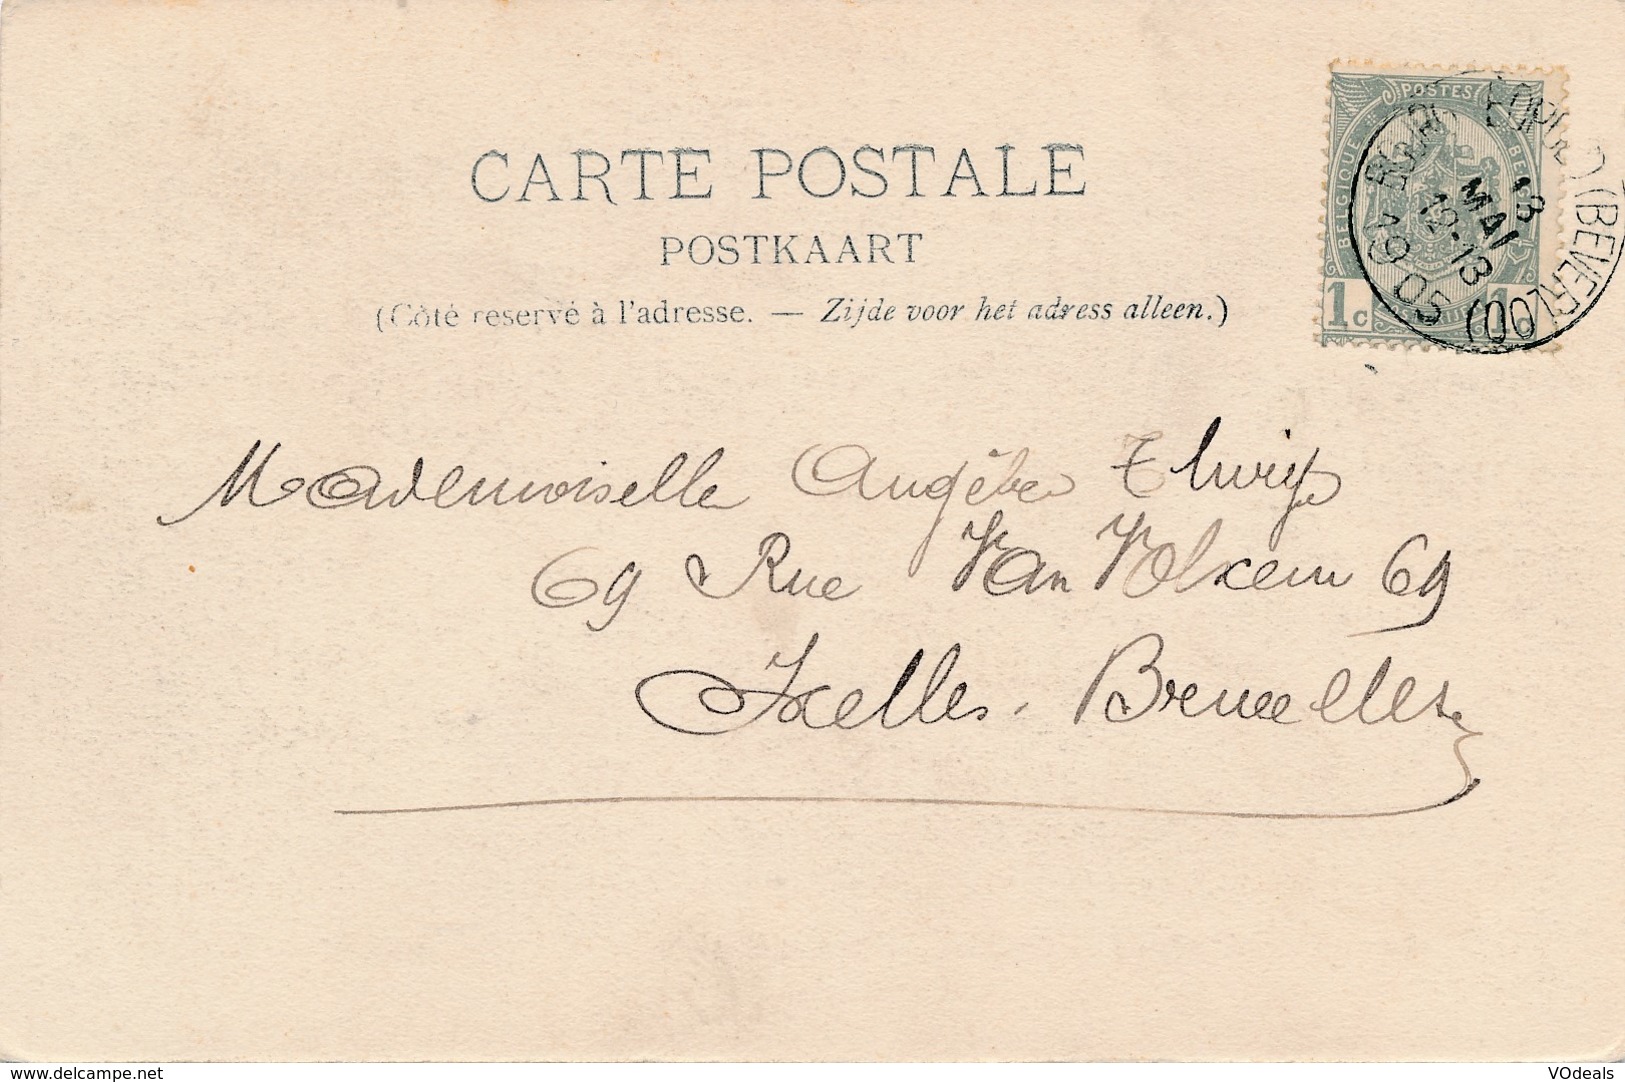 CARTE POSTALE
POSTKAART
(Côté reservé à l'adresse. — Zijde voor het adress alleen.)
POSTES
BELGIQUE
1c
BOURG LÉOPOLD (BEVERLOO)
13
MAI
12-13
1905
Mademoiselle Angèle
69 Rue Van Volxem 69
Ixelles. Bruxelles
www.delcampe.net
VOdeals